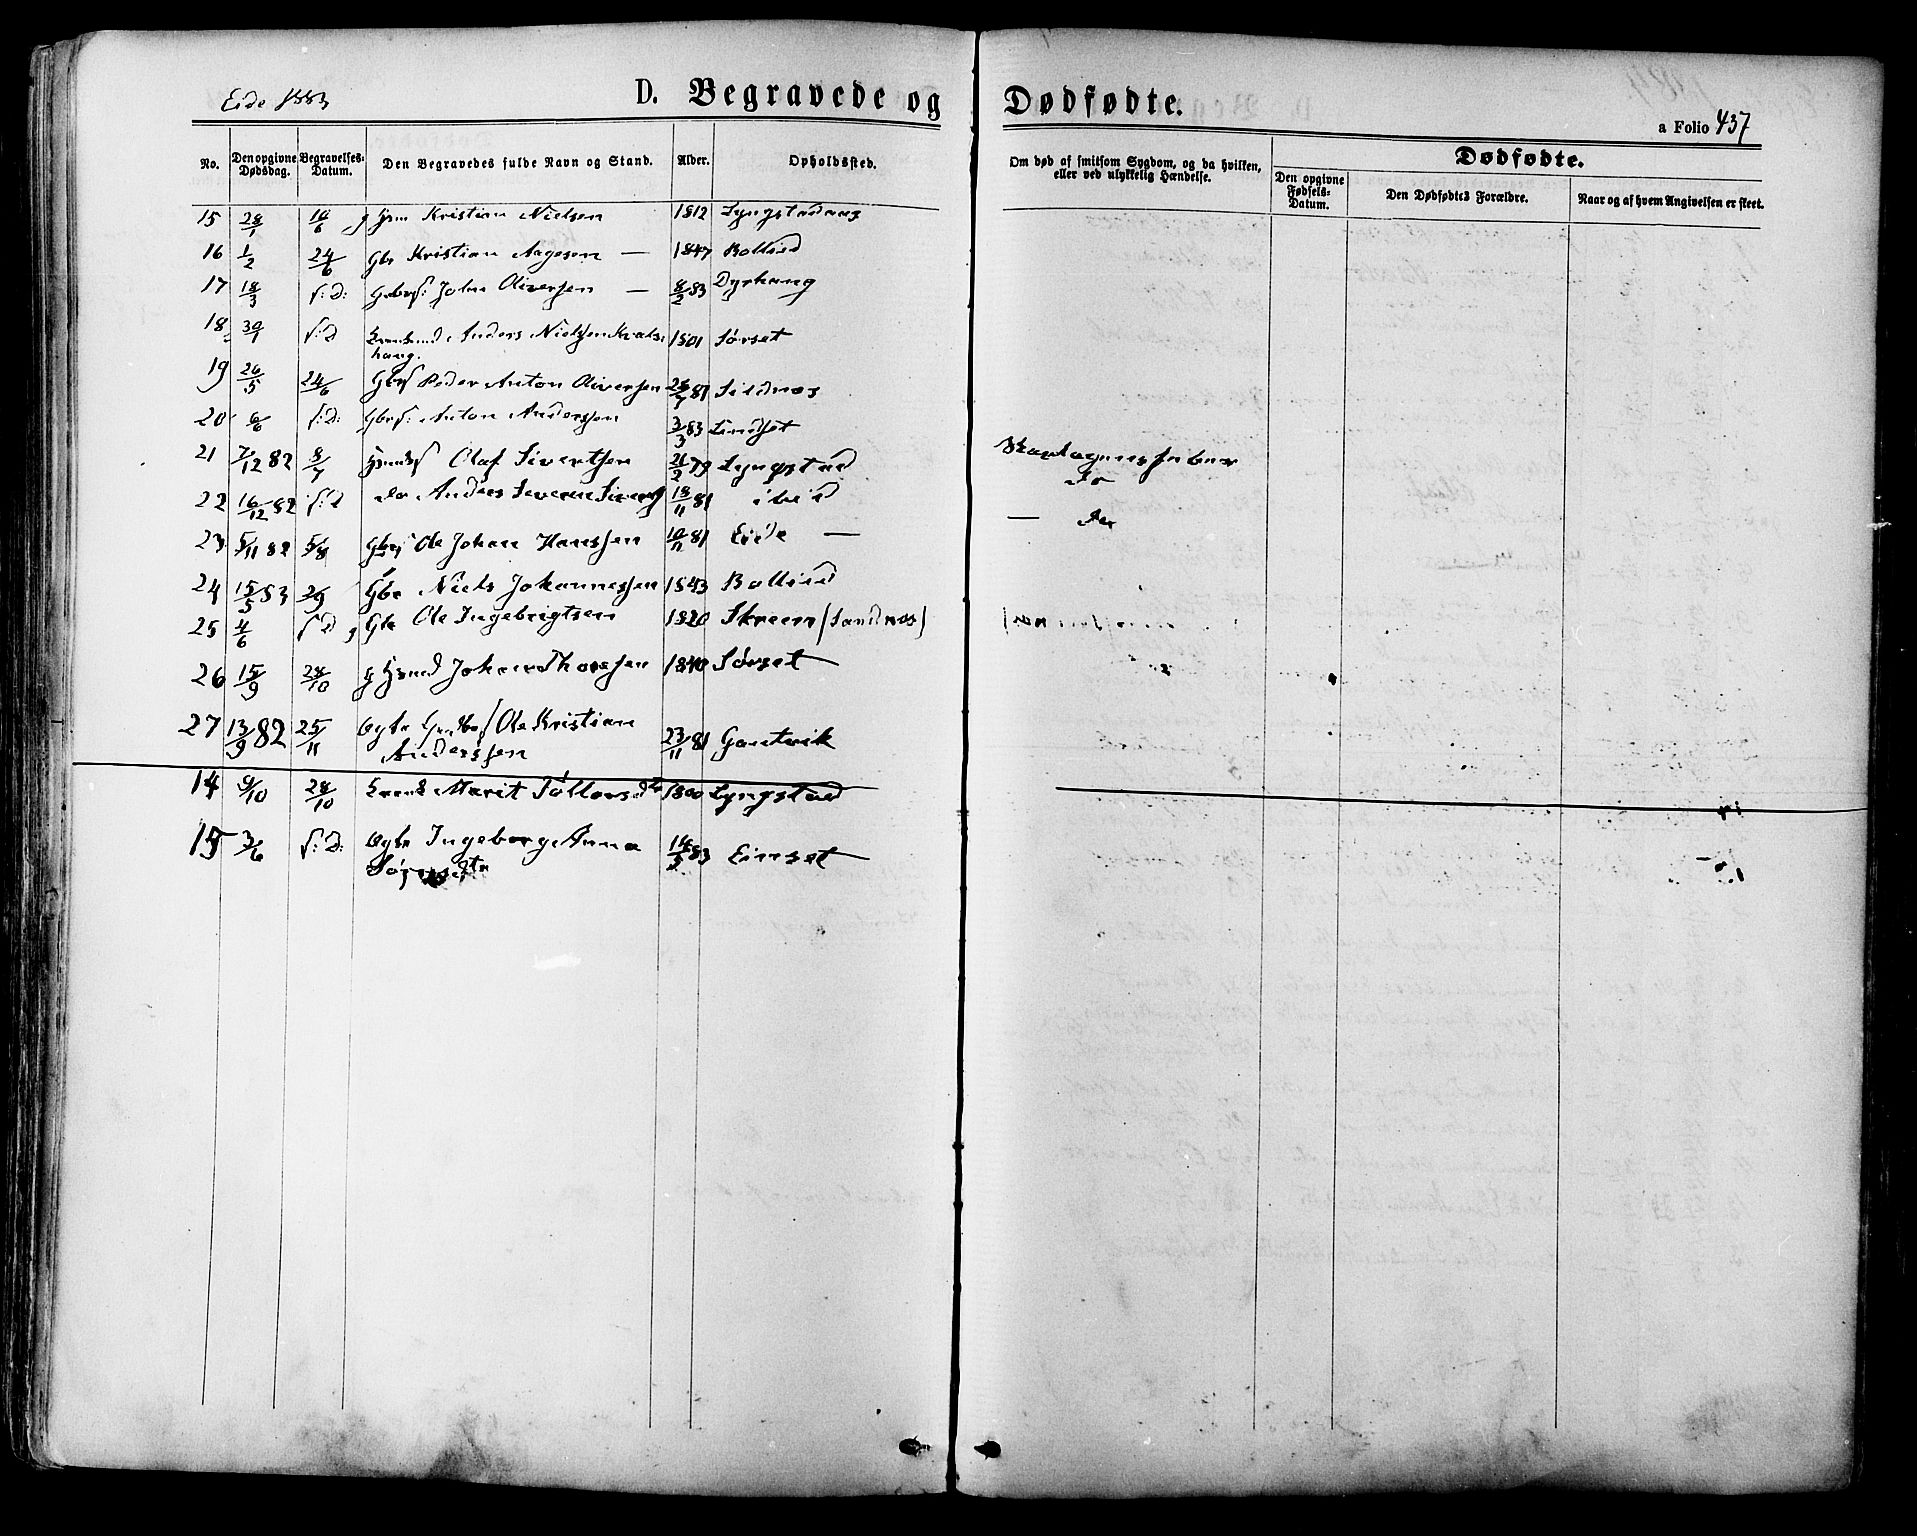 Eide 1883
D. Begravede og Dødfødte.
a Folio 437
No. Den opgivne Dødsdag. Begravelses-Datum. Den Begravedes fulde Navn og Stand. Alder. Opholdssted. Om død af smitsom Sygdom, og da hvilken, eller ved ulykkelig Hændelse. Dødfødte.
Den opgivne Fødsels-Datum. Den Dødfødtes Forældre. Naar og af hvem Angivelsen er skeet.
15 28/1 10/6 Kristian Nielsen 1812 Lyngstadnæs
16 1/2 24/6 Gbr Kristian Aagesen — 1847 Bollied
17 18/3 s: D: Gbrs: John Oliversen — 8/2 83 Dyrhaug
18 30/1 s: D Anders Nielsen Kvals-
haug. 1801 Sørset
19 26/5 24/6 Gbrs Peder Anton Oliversen 81 Sildnæs
20 6/6 s: D: Gbrs: Anton Anderssen 3/3 83 Lindset
21 7/12 82 8/7 Olaf Sivertsen 21/2 79 Lyngstad Skarlagensfeber
22 16/12 82 s: d do Anders Severin 18/11 81 ibid do
23 5/11 82 5/8 Gbrs Ole Johan Hanssen 10/11 81 Eide —
24 15/5 83 2/9 Gbr Niels Johannessen 1843 Bollied
25 4/6 s D Gbr Ole Ingebrigtsen 1820 Skreen (Sandnes)
26 15/9 28/10 Johan Thoresen 1840 Sørset
27 13/9 82 25/11 Ole Kristian
Anderssen 23/11 81 Gautvik
14 9/10 28/10 Marit 1800 Lyngstad
15 3/6 s: D: Ingeborg Anna
14/5 83 Einset